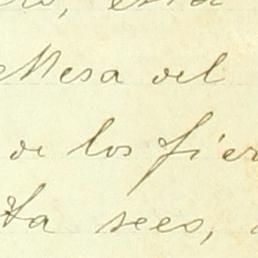 Mesa del
de los fier
ta sees,